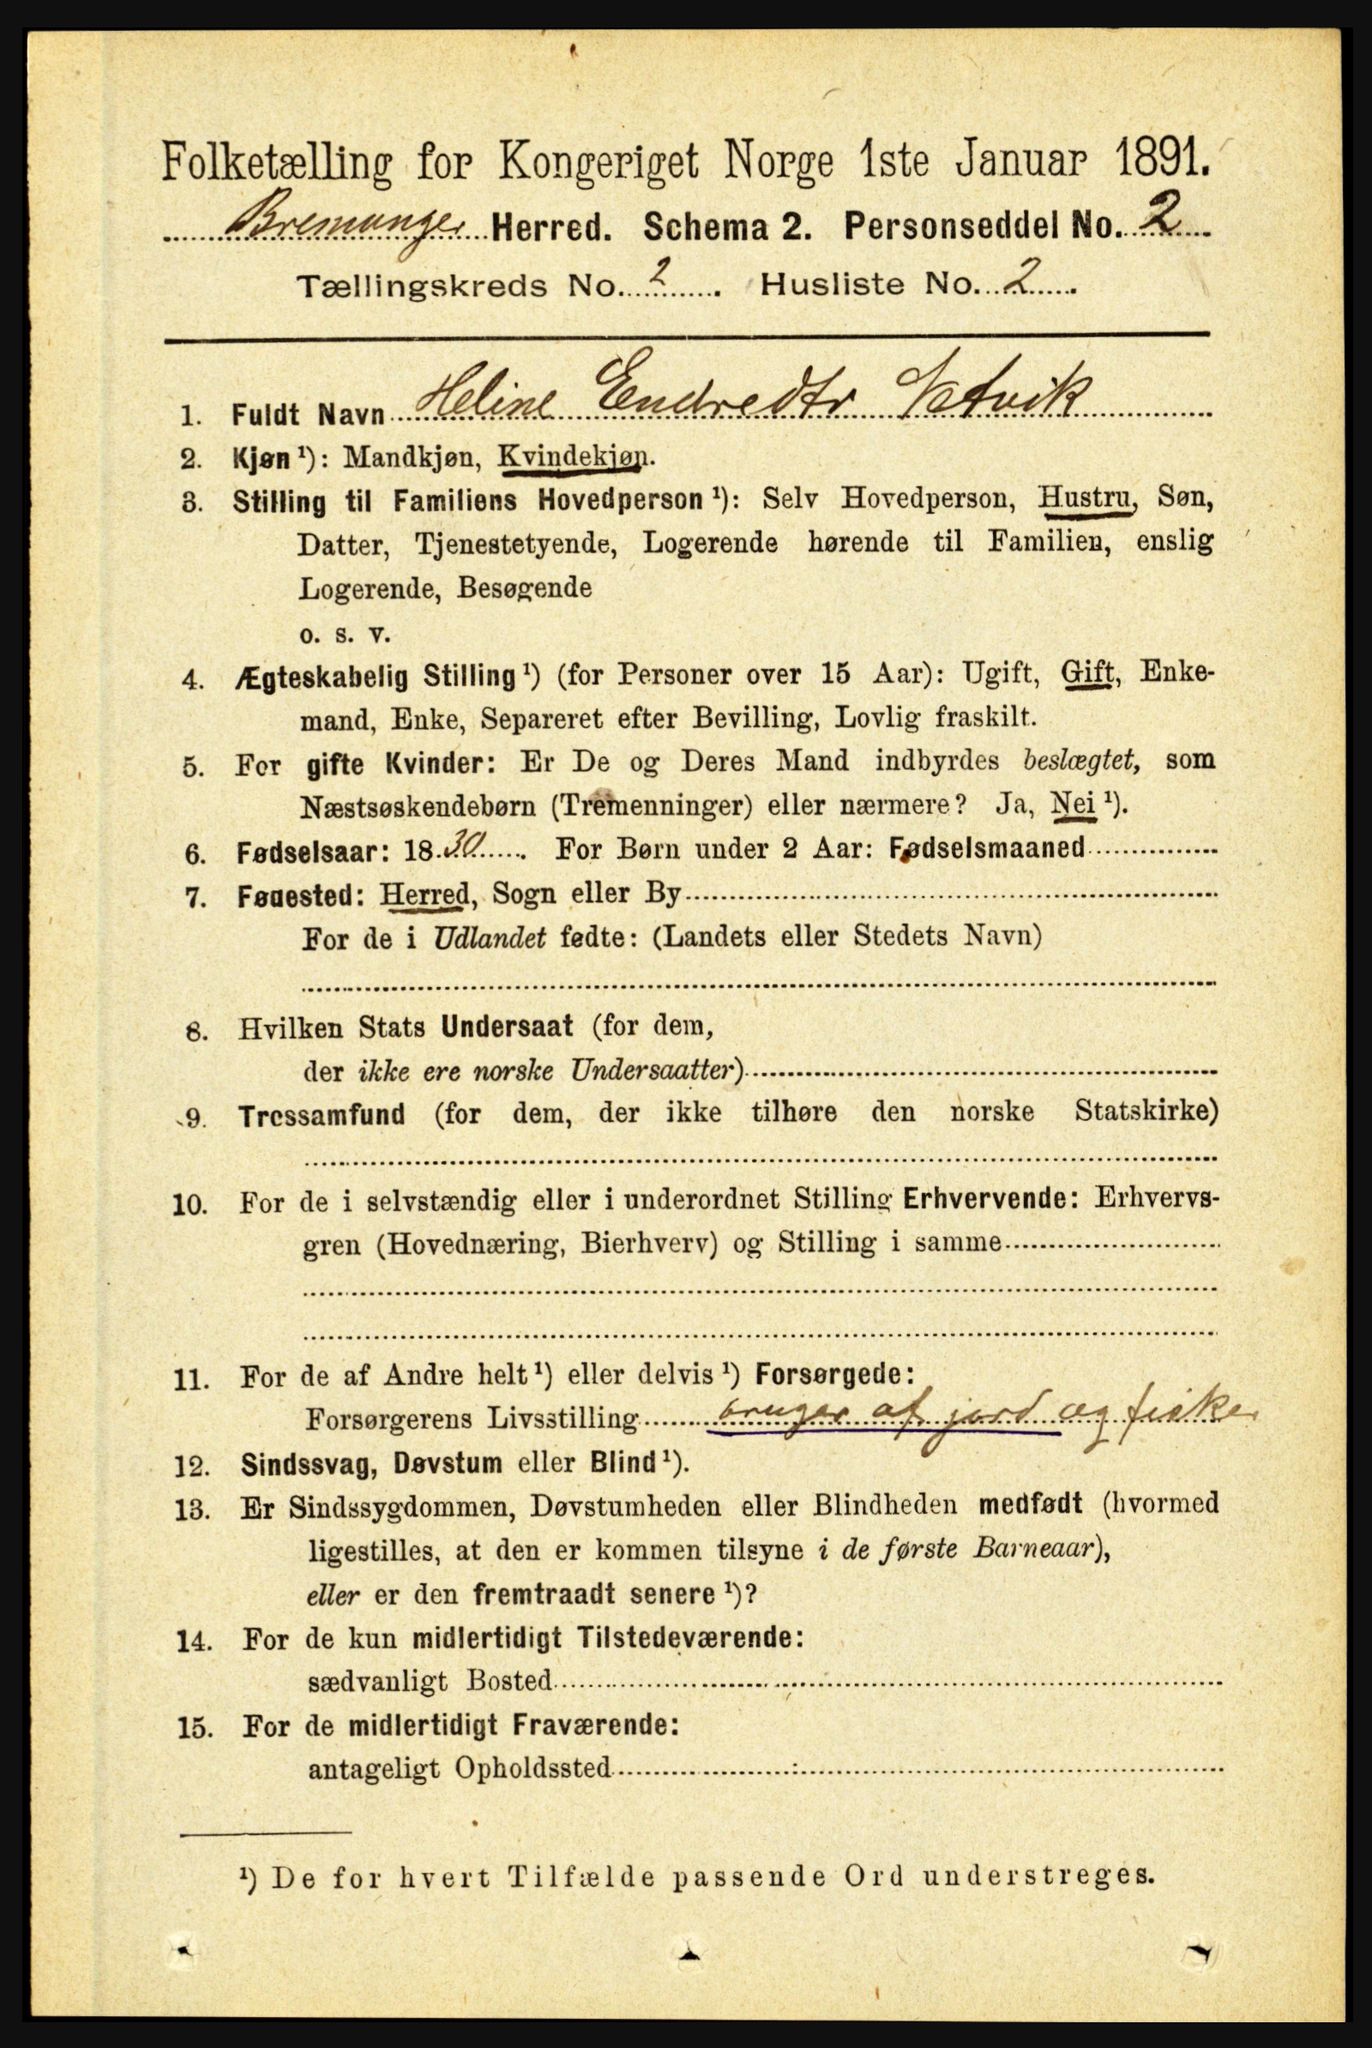 Folketælling for Kongeriget Norge 1ste Januar 1891.
Bremanger Herred. Schema 2. Personseddel No. 2
Tællingskreds No. 2. Husliste No. 2.
1. Fuldt Navn Heline Endredtr
2. Kjøn ¹): Mandkjøn, Kvindekjøn.
3. Stilling til Familiens Hovedperson ¹): Selv Hovedperson, Hustru, Søn,
Datter, Tjenestetyende, Logerende hørende til Familien, enslig
Logerende, Besøgende
o. s. v.
4. Ægteskabelig Stilling ¹) (for Personer over 15 Aar): Ugift, Gift, Enke-
mand, Enke, Separeret efter Bevilling, Lovlig fraskilt.
5. For gifte Kvinder: Er De og Deres Mand indbyrdes beslægtet, som
Næstsøskendebørn (Tremenninger) eller nærmere? Ja, Nei ¹).
6. Fødselsaar: 1830. For Børn under 2 Aar: Fødselsmaaned
7. Fødested: Herred, Sogn eller By
For de i Udlandet fødte: (Landets eller Stedets Navn)
8. Hvilken Stats Undersaat (for dem,
der ikke ere norske Undersaatter)
9. Trossamfund (for dem, der ikke tilhøre den norske Statskirke)
10. For de i selvstændig eller i underordnet Stilling Erhvervende: Erhvervs-
gren (Hovednæring, Bierhverv) og Stilling i samme
11. For de af Andre helt ¹) eller delvis ¹) Forsørgede:
Forsørgerens Livsstilling bruger af jord og fisker
12. Sindssvag, Døvstum eller Blind ¹).
13. Er Sindssygdommen, Døvstumheden eller Blindheden medfødt (hvormed
ligestilles, at den er kommen tilsyne i de første Barneaar),
eller er den fremtraadt senere ¹)?
14. For de kun midlertidigt Tilstedeværende:
sædvanligt Bosted
15. For de midlertidigt Fraværende:
antageligt Opholdssted
¹) De for hvert Tilfælde passende Ord understreges.